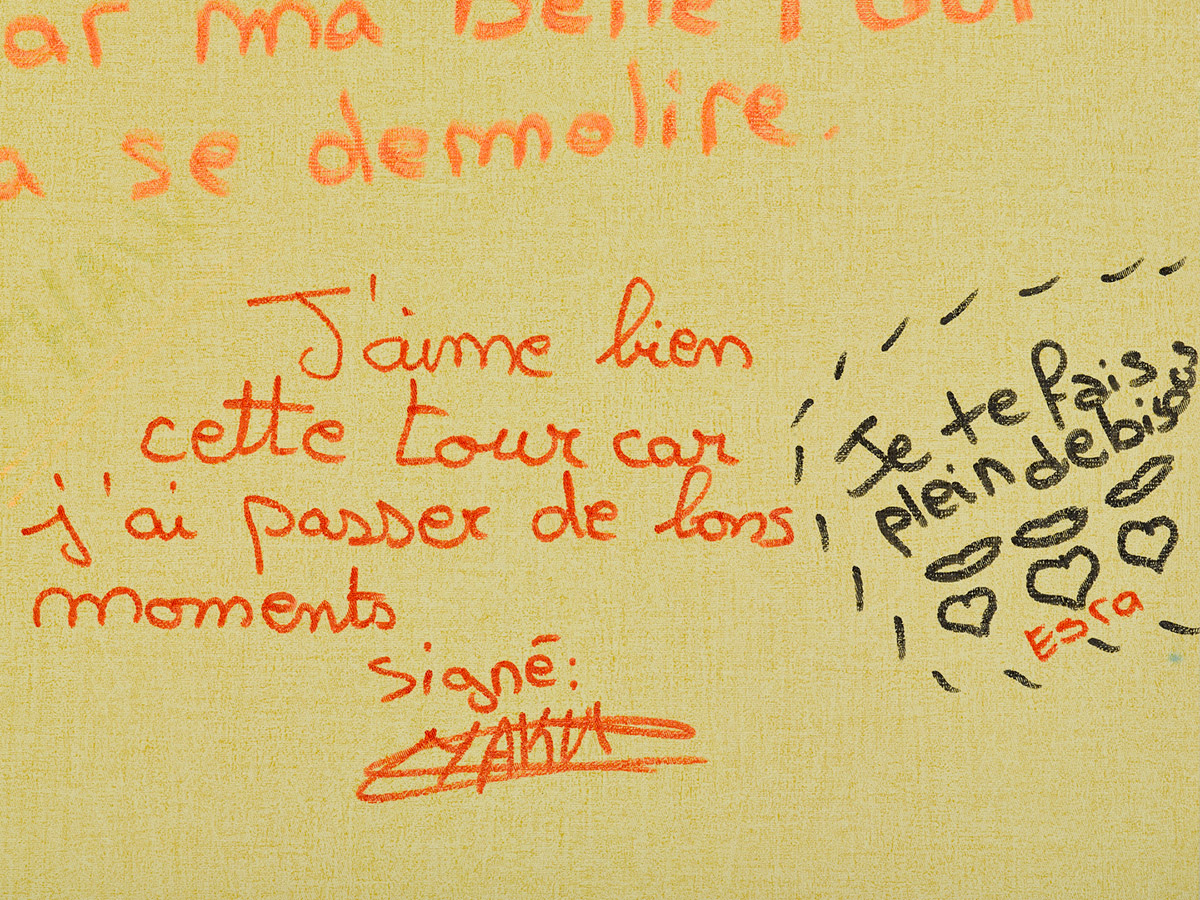 ar ma Belle Tour
a se demolire.
J'aime bien
cette tour car
j'ai passer de bons
moments
signé:
Je te fais
plein de bisous
Esra